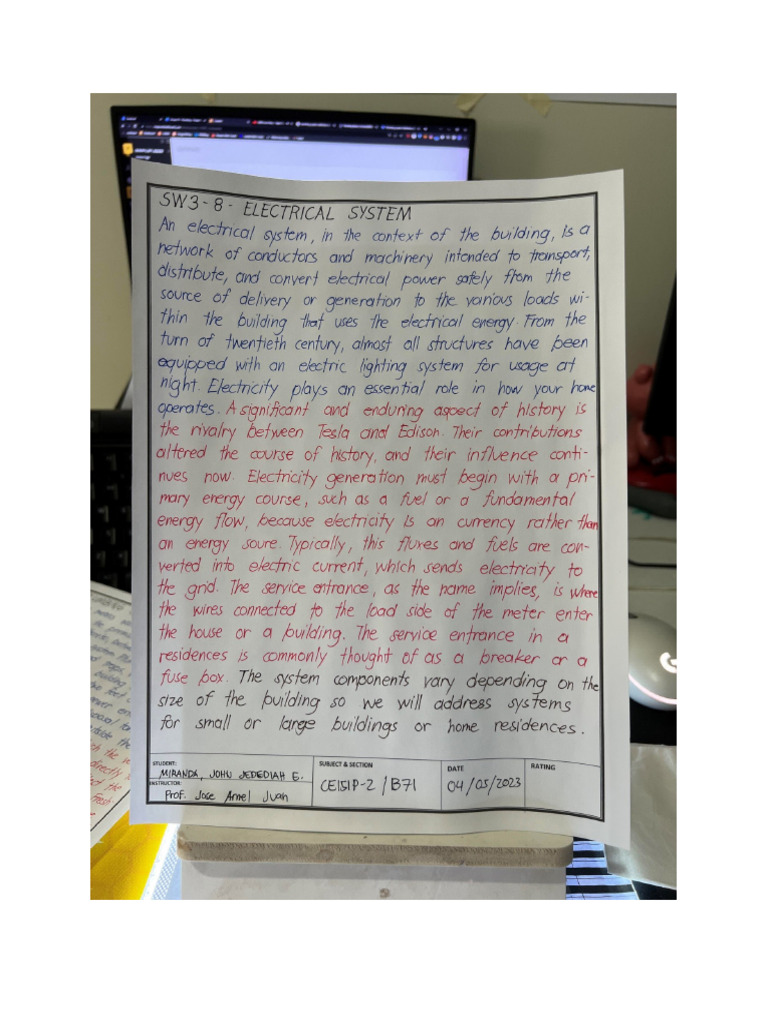 SW3-8- ELECTRICAL SYSTEM
An electrical system, in the context of the building, is a
network of conductors and machinery intended to transport,
distribute, and convert electrical power safely from the
source of delivery or generation to the various loads wi-
thin the building that uses the electrical energy. From the
turn of twentieth century, almost all structures have been
equipped with an electric lighting system for usage at
night. Electricity plays an essential role in how your home
operates. A significant and enduring aspect of history is
the rivalry between Tesla and Edison. Their contributions
altered the course of history, and their influence conti-
nues now. Electricity generation must begin with a pri-
mary energy course, such as a fuel or a fundamental
energy flow, because electricity is an currency rather than
an energy soure. Typically, this fluxes and fuels are con-
verted into electric current, which sends electricity to
the grid. The service entrance, as the name implies, is where
the wires connected to the load side of the meter enter
the house or a building. The service entrance in a
residences is commonly thought of as a breaker or a
fuse box. The system components vary depending on the
size of the building so we will address systems
for small or large buildings or home residences.
STUDENT:
MIRANDA, JOHN JEDEDIAH E.
INSTRUCTOR:
Prof. Jose Arnel Juan
SUBJECT & SECTION
CE151P-2 / B71
DATE
04/05/2023
RATING